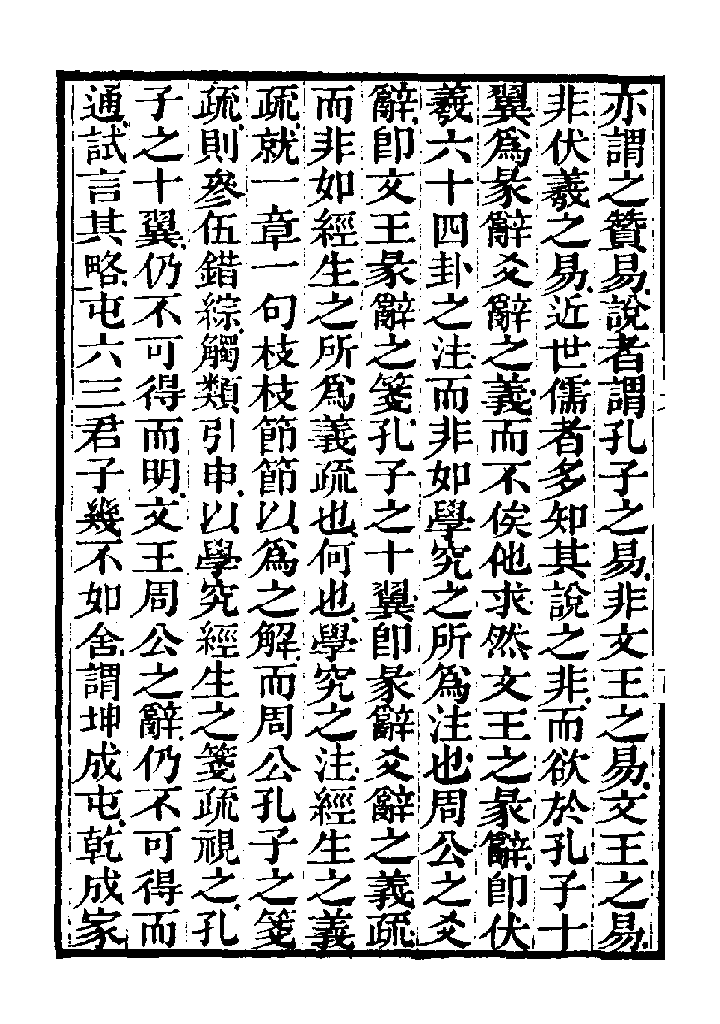 亦謂之贊易說者謂孔子之易非文王之易文王之易
非伏羲之易近世儒者多知其說之非而欲於孔子十
翼爲彖辭爻辭之義而不俟他求然文王之彖辭卽伏
羲六十四卦之注而非如學究之所爲注也周公之爻
辭卽文王彖辭之箋孔子之十翼卽彖辭爻辭之義疏
而非如經生之所爲義疏也何也學究之注經生之義
疏就一章一句枝枝節節以爲之解而周公孔子之箋
疏則參伍錯綜觸類引申以學究經生之箋疏視之孔
子之十翼仍不可得而明文王周公之辭仍不可得而
通試言其略屯六三君子幾不如舍謂坤成屯乾成家